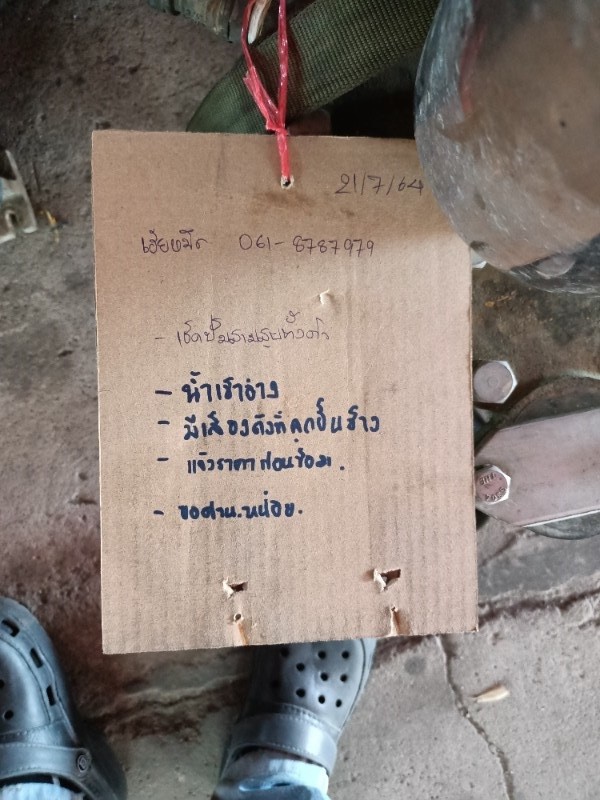 21/7/64
เฮียหมึก 061-8787979
- เช็คปั๊ม
- น้ำเข้าอ่าง
- มีเสียงดังที่ลูกปืนข้าง
- แจ้งราคาก่อนซ่อม.
- ขอด่วน.หน่อย.